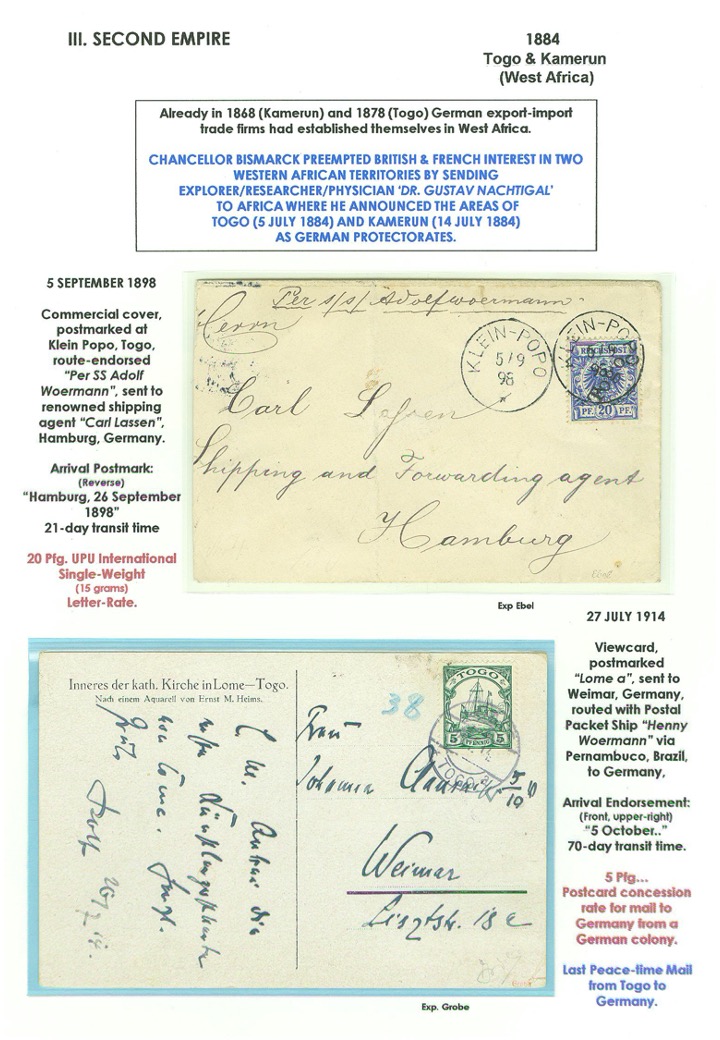 III. SECOND EMPIRE
1884
Togo & Kamerun
(West Africa)
Already in 1868 (Kamerun) and 1878 (Togo) German export-import
trade firms had established themselves in West Africa.
CHANCELLOR BISMARCK PREEMPTED BRITISH & FRENCH INTEREST IN TWO
WESTERN AFRICAN TERRITORIES BY SENDING
EXPLORER/RESEARCHER/PHYSICIAN 'DR. GUSTAV NACHTIGAL'
TO AFRICA WHERE HE ANNOUNCED THE AREAS OF
TOGO (5 JULY 1884) AND KAMERUN (14 JULY 1884)
AS GERMAN PROTECTORATES.
5 SEPTEMBER 1898
Commercial cover,
postmarked at
Klein Popo, Togo,
route-endorsed
"Per SS Adolf
Woermann", sent to
renowned shipping
agent "Carl Lassen",
Hamburg, Germany.
Arrival Postmark:
(Reverse)
"Hamburg, 26 September
1898"
21-day transit time
20 Pfg. UPU International
Single-Weight
(15 grams)
Letter-Rate.
Per s/s/ Adolfwoermann
Herrn
KLEIN-POPO
5/9
98
KLEIN-POPO
REICHSPOST
PF. 20 PF.
Carl Lassen
Shipping and Forwarding agent
Hamburg
Exp Ebel
27 JULY 1914
Viewcard,
postmarked
"Lome a", sent to
Weimar, Germany,
routed with Postal
Packet Ship "Henny
Woermann" via
Pernambuco, Brazil,
to Germany,
Arrival Endorsement:
(Front, upper-right)
"5 October.."
70-day transit time.
5 Pfg...
Postcard concession
rate for mail to
Germany from a
German colony.
Last Peace-time Mail
from Togo to
Germany.
Inneres der kath. Kirche in Lome—Togo.
Nach einem Aquarell von Ernst M. Heims.
38
TOGO
5 PFENNIG 5
TOGO
Frau
Johanna
5/10
Weimar
Lisztstr. 18
von Lome.
Exp. Grobe